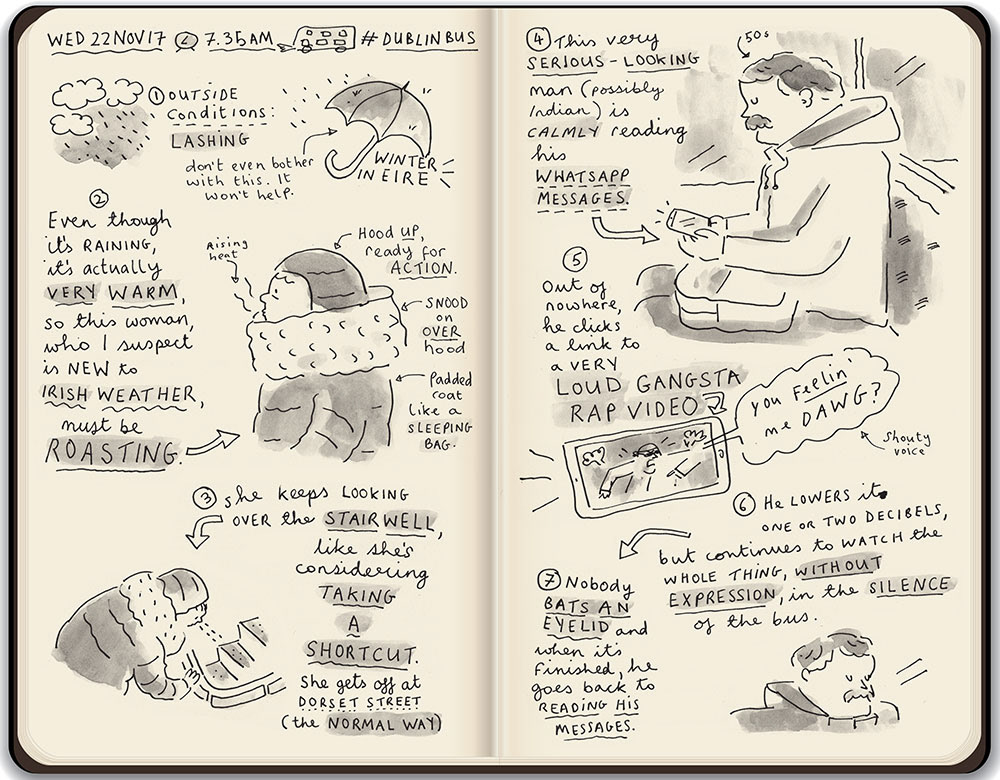 WED 22NOV17 @ 7.35AM #DUBLINBUS
① OUTSIDE
Conditions:
LASHING
don't even bother
with this. It
won't help.
WINTER
IN EIRE
②
Even though
it's RAINING,
it's actually
VERY WARM,
so this woman,
who I suspect
is NEW to
IRISH WEATHER,
must be
ROASTING.
Rising
heat
Hood UP,
ready for
ACTION.
SNOOD
on
OVER
hood
Padded
coat
like a
SLEEPING
BAG.
③ She keeps LOOKING
OVER the STAIRWELL,
like she's
considering
TAKING
A
SHORTCUT.
She gets off at
DORSET STREET
(the NORMAL WAY)
④ This very
SERIOUS-LOOKING
man (possibly
Indian) is
CALMLY reading
his
WHATSAPP
MESSAGES.
50s
⑤
Out of
nowhere,
he clicks
a link to
a VERY
LOUD GANGSTA
RAP VIDEO
you Feelin'
me DAWG?
Shouty
voice
⑥ He LOWERS it
ONE OR TWO DECIBELS,
but continues to WATCH the
WHOLE THING, WITHOUT
EXPRESSION, in the SILENCE
of the bus.
⑦ Nobody
BATS AN
EYELID and
when it's
Finished, he
goes back to
READING HIS
MESSAGES.